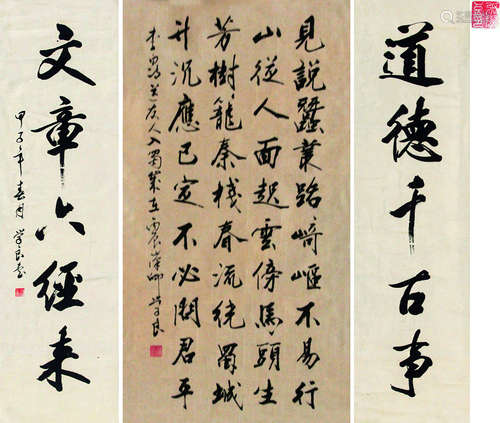 道德千古事
見說蠶叢路崎嶇不易行
山從人面起雲傍馬頭生
芳樹籠秦棧春流繞蜀城
升沉應已定不必問君平
友人入蜀
丙辰
學良
文章六經來
甲子年春月學良書